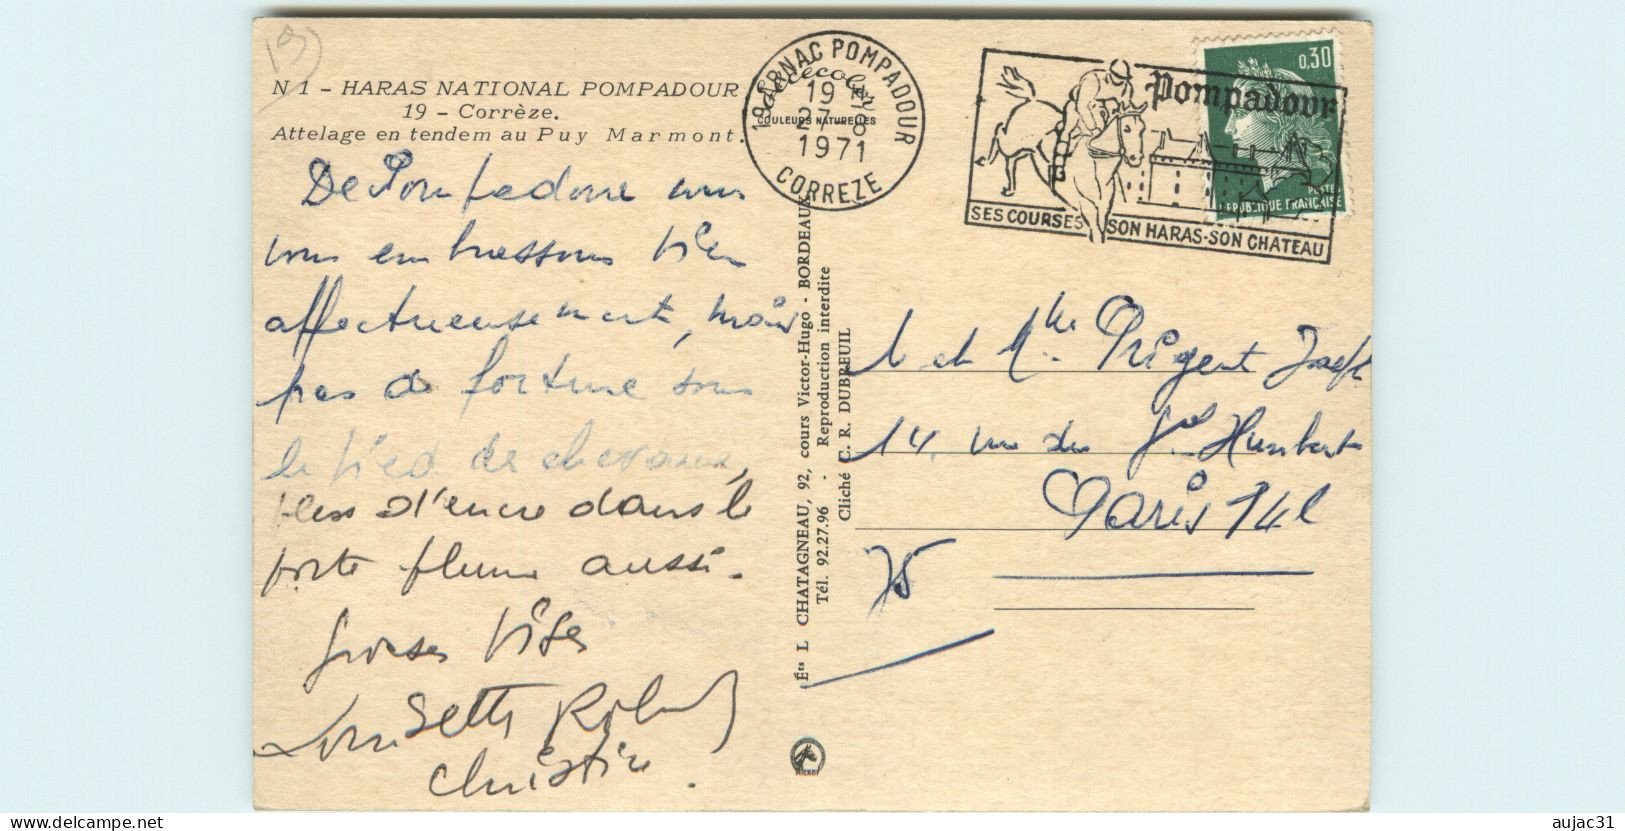 19
N 1 – HARAS NATIONAL POMPADOUR
19 – Corrèze.
Attelage en tendem au Puy Marmont.
De Pompadour nous
vous embrassons bien
affectueusement, mais
pas de fortune sous
le pied de chevaux,
plus d'encre dans le
porte plume aussi.
Grosses bises
Louisette Robert
Christine
COULEURS NATURELLES
19 ARNAC POMPADOUR
19 H
27 - 8
1971
CORREZE
Pompadour
SES COURSES SON HARAS-SON CHATEAU
0,30
POSTES
REPUBLIQUE FRANÇAISE
Éts L CHATAGNEAU, 92, cours Victor-Hugo - BORDEAUX
Tél. 92.27.96 - Reproduction interdite
Cliché C. R. DUBREUIL
M et Mme Prigent Joseph
14, rue du Gal Humbert
Paris 14e
75
aujac31